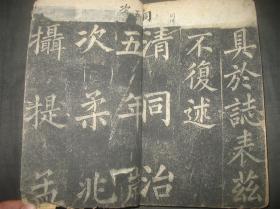 具於誌表茲
不復述
清同治
五年
次柔兆
攝提孟